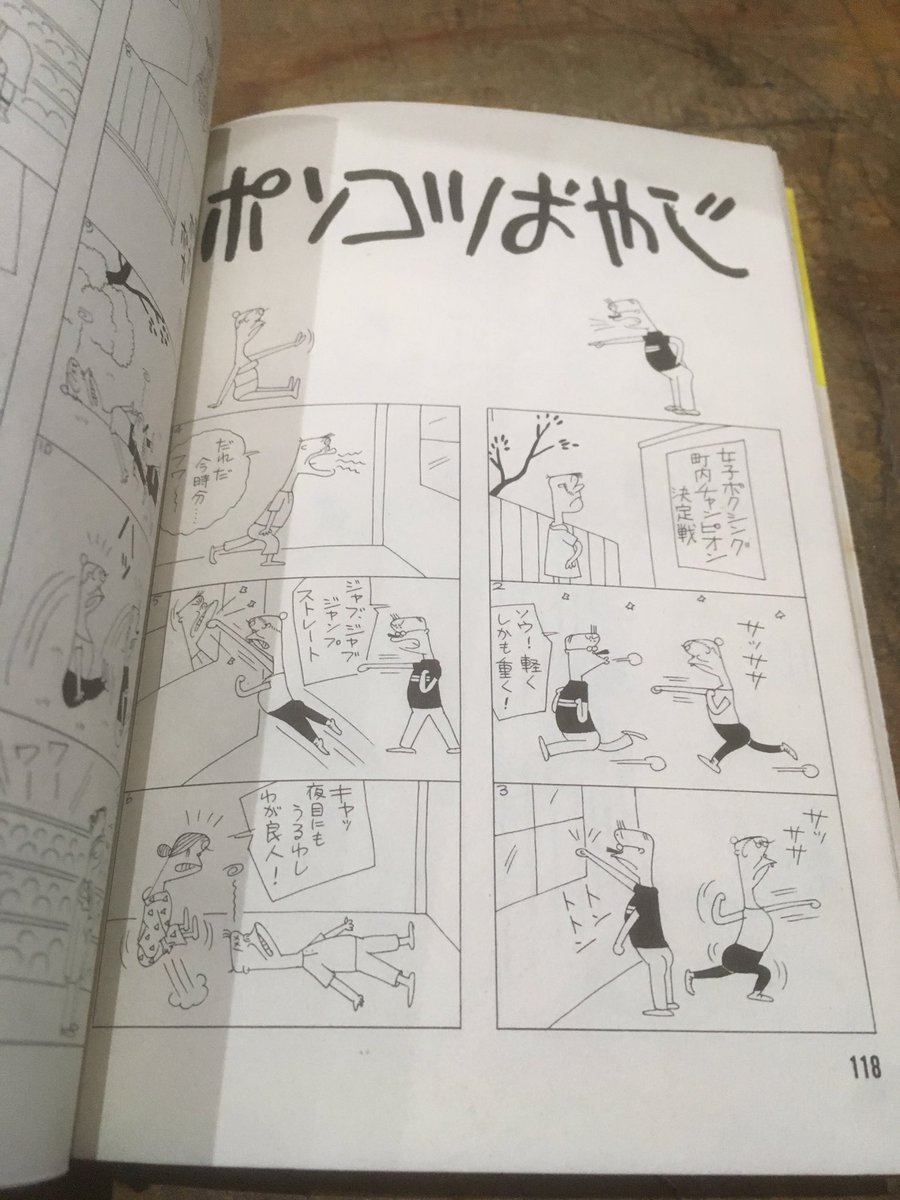 ポンコツおやじ
女子ボクシング
町内チャンピオン
決定戦
2
ソウ！軽く
しかも重く！
サッササ
3
トントン
サッササ
4
だれだ
今時分…
フワ〜
5
ジャブ、ジャブ
ジャンプ
ストレート
6
キャッ
夜目にも
うるわし
わが良人！
118